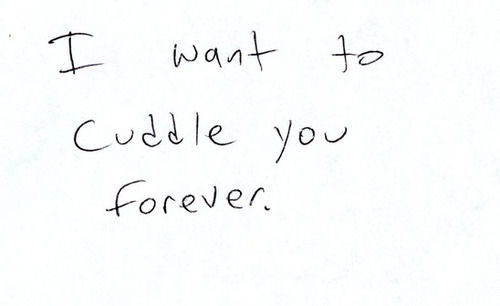 I want to
Cuddle you
forever.